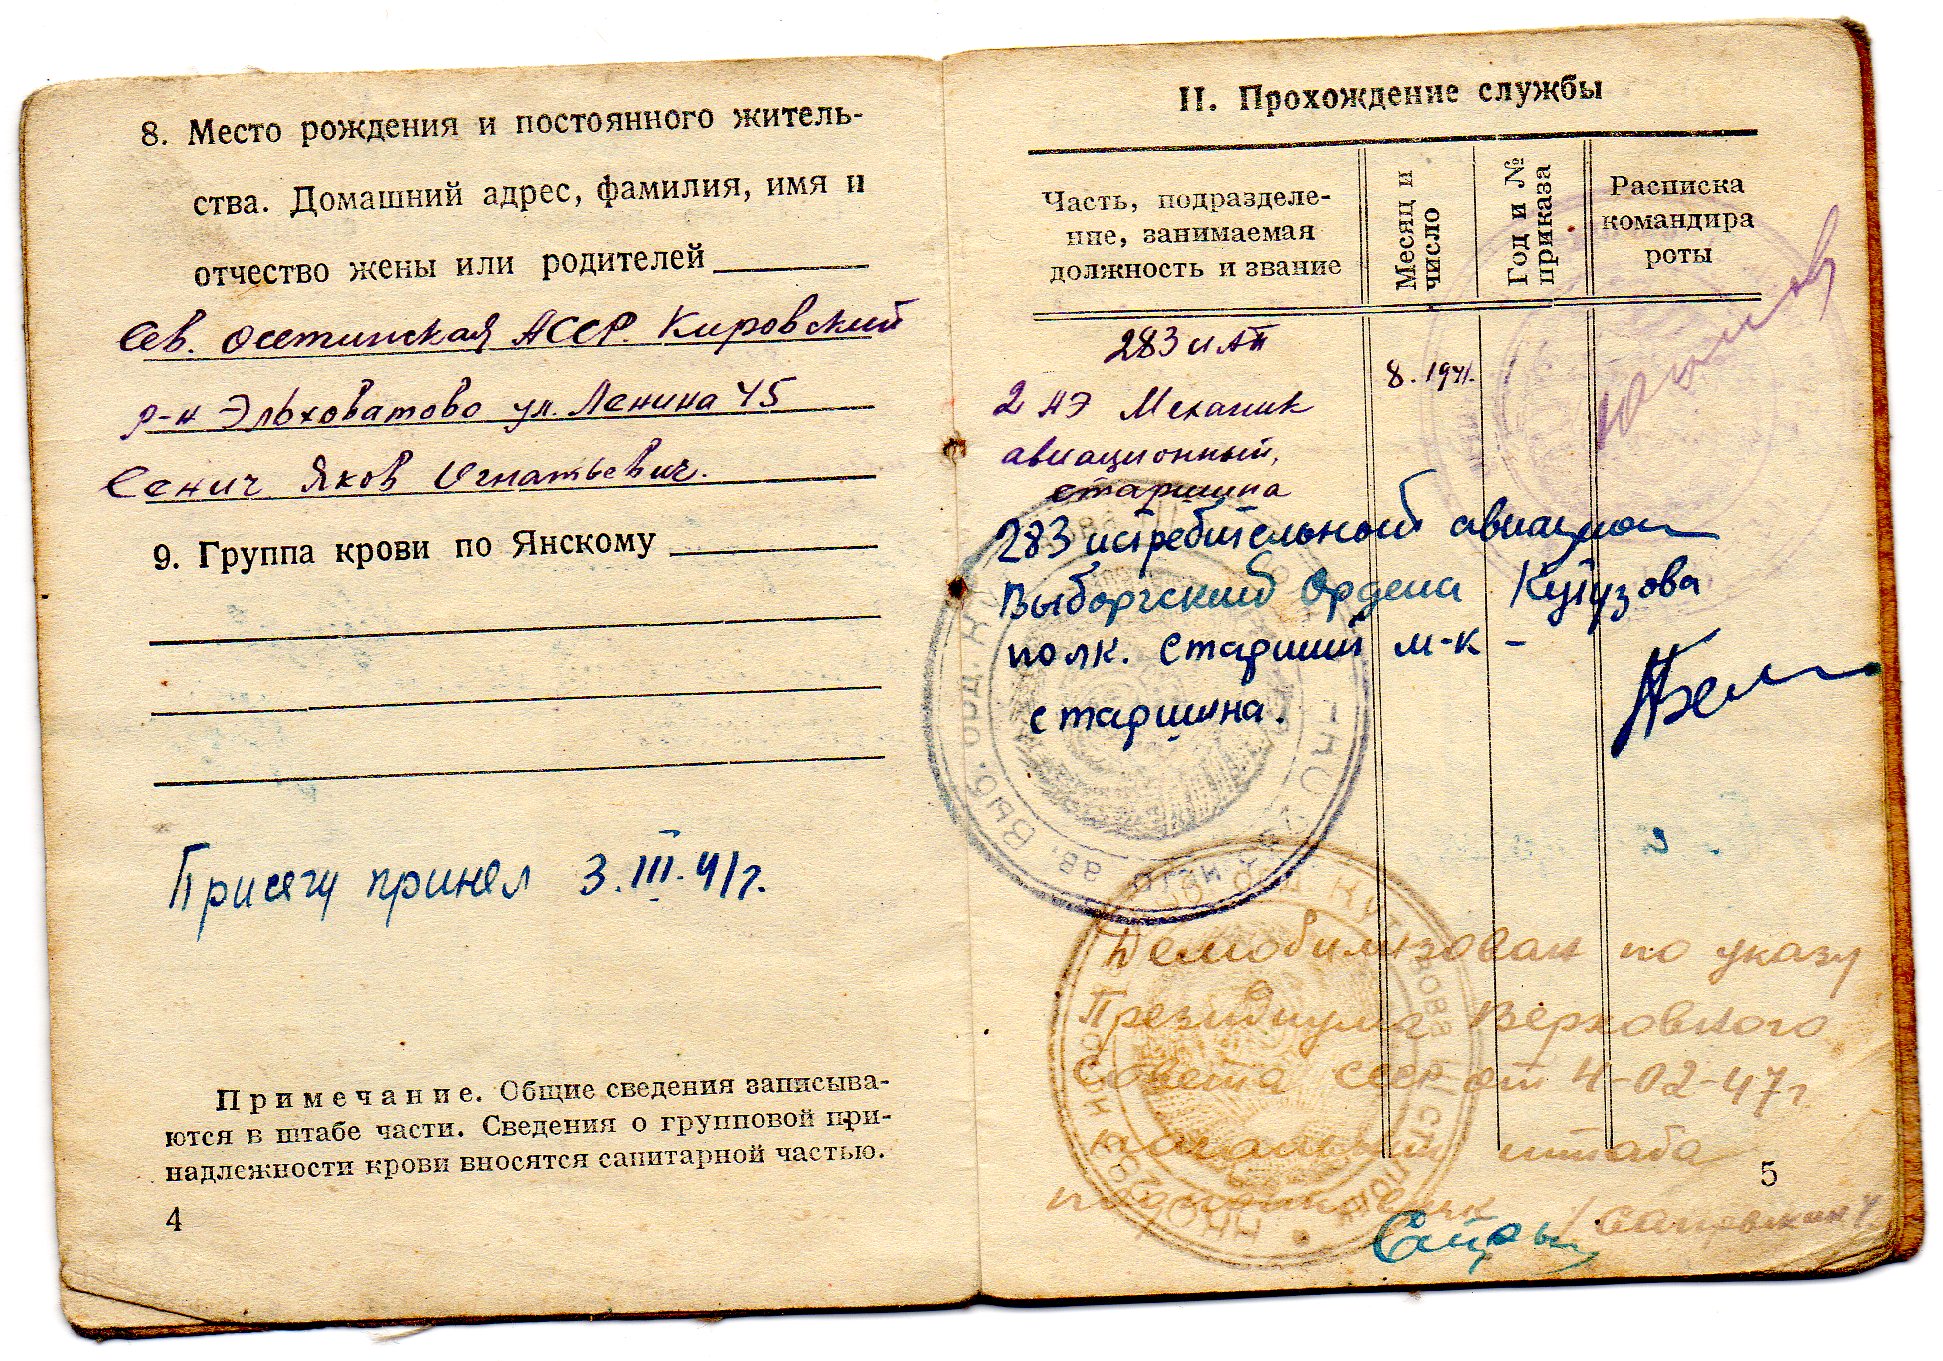 8. Место рождения и постоянного житель-
ства. Домашний адрес, фамилия, имя и
отчество жены или родителей
Сев. Осетинская АССР. Кировский
р-н Эльховатово ул. Ленина 45
Сенич Яков Игнатьевич.
9. Группа крови по Янскому
Присягу принял 3.III.41г.
Примечание. Общие сведения записыва-
ются в штабе части. Сведения о групповой при-
надлежности крови вносятся санитарной частью.
4
II. Прохождение службы
Часть, подразделе-
ние, занимаемая
должность и звание
Месяц и
число
Год и №
приказа
Расписка
командира
роты
283 иап
8. 1941.
2 АЭ Механик
авиационный,
старшина
283 истребительный авиацион
Выборгский Ордена Кутузова
полк. Старший м-к -
старшина.
Демобилизован по указу
Президиума Верховного
Совета СССР от 4-02-47г
начальник штаба
подполковник
5